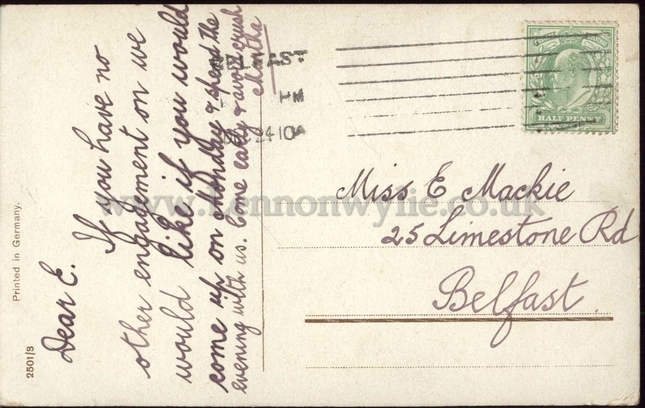 Dear E.
If you have no
other engagement on we
would like if you would
come up on Monday & spend the
evening with us. Come early & avoid crush
Martha
AST
PM
24 10
HALF PENNY
Miss E Mackie
25 Limestone Rd
Belfast.
www.Lennonwylie.co.uk
Printed in Germany.
2501/8